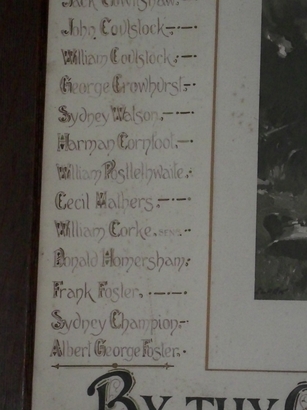 Jack
John Coulstock
William Coulstock
George Crowhurst
Sydney Watson
Harman Cornfoot
William Postlethwaite
Cecil Mathers
William Corke, SENR
Donald Homersham
Frank Foster
Sydney Champion
Albert George Foster
BY THY